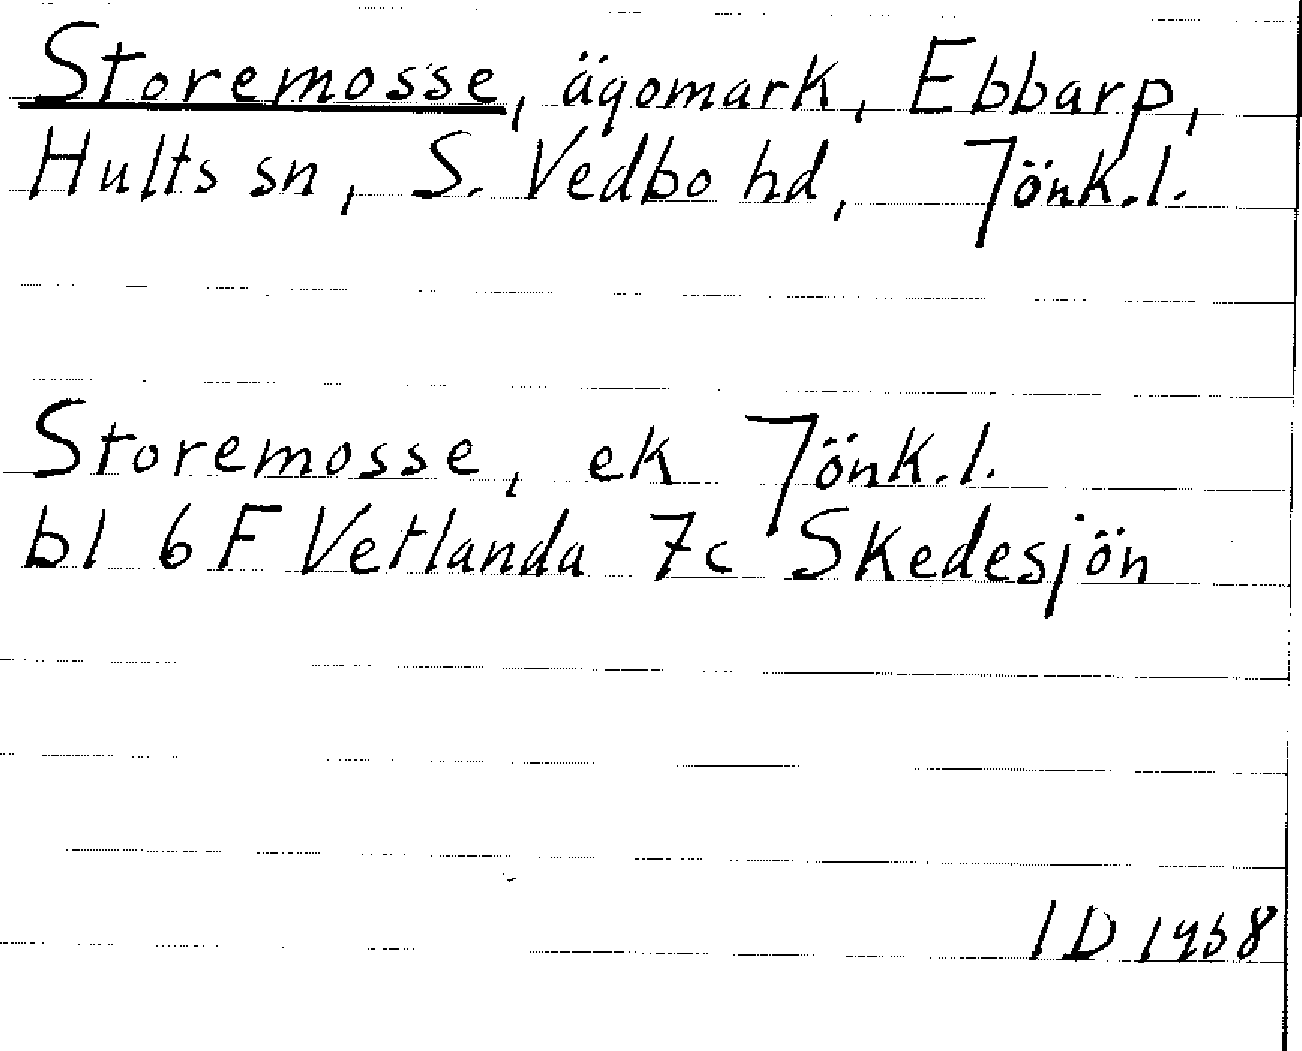 Storemosse, ägomark, Ebbarp,
Hults sn, S. Vedbo hd, Jönk.l.
Storemosse, ek Jönk.l.
bl 6 F Vetlanda 7c Skedesjön
ID 1958